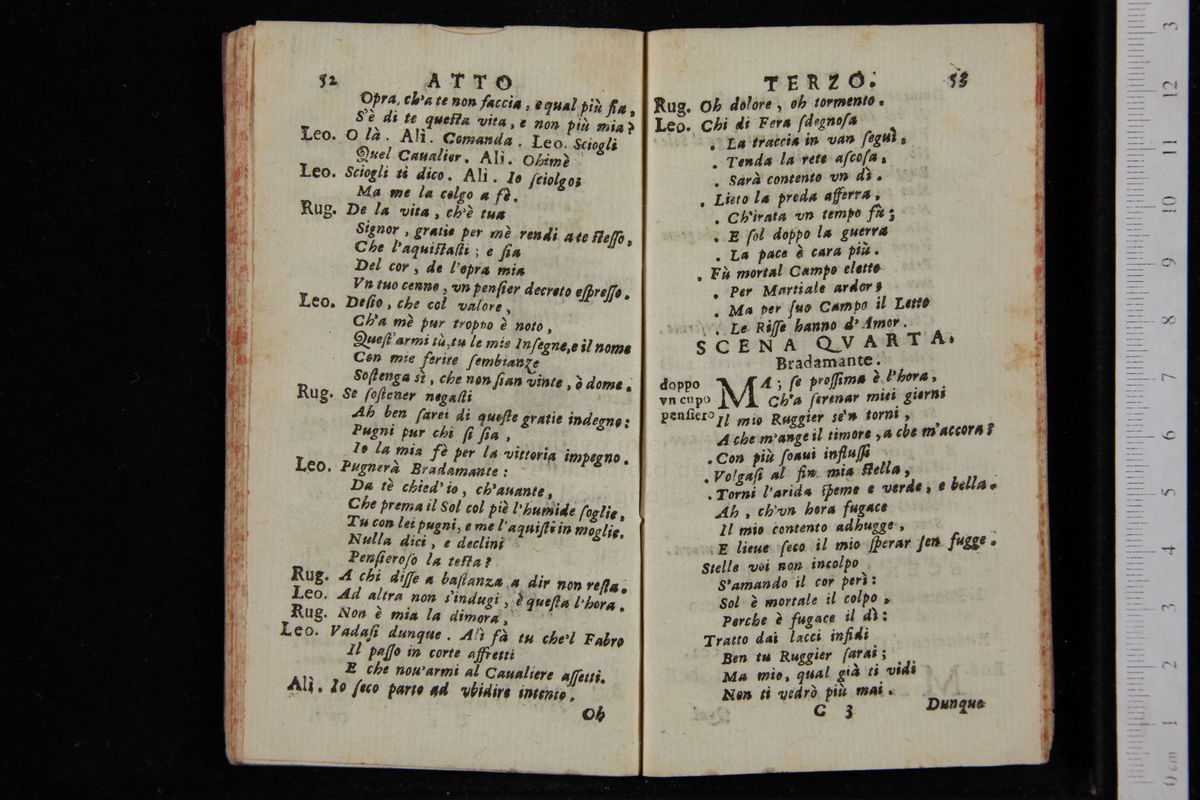 52 ATTO
Opra, ch'a te non faccia, e qual più fia,
S'è di te questa vita, e non più mia?
Leo. O là. Alì. Comanda. Leo. Sciogli
Quel Caualier. Alì. Ohimè
Leo. Sciogli ti dico. Alì. Io sciolgo;
Ma me la colgo a fè.
Rug. De la vita, ch'è tua
Signor, gratie per mè rendi a te stesso,
Che l'aquistasti; e sia
Del cor, de l'opra mia
Vn tuo cenno, vn pensier decreto espresso.
Leo. Desio, che col valore,
Ch'a mè pur troppo è noto,
Quest'armi tù, tu le mie Insegne, e il nome
Con mie ferite sembianze
Sostenga sì, che non sian vinte, ò dome.
Rug. Se sostener negasti
Ah ben sarei di queste gratie indegno:
Pugni pur chi si sia,
Io la mia fè per la vittoria impegno.
Leo. Pugnerà Bradamante:
Da tè chied'io, ch'auante,
Che prema il Sol col piè l'humide soglie,
Tu con lei pugni, e me l'aquisti in moglie.
Nulla dici, e declini
Pensieroso la testa?
Rug. A chi disse a bastanza a dir non resta.
Leo. Ad altra non s'indugi, è questa l'hora.
Rug. Non è mia la dimora,
Leo. Vadasi dunque. Alì fà tu che'l Fabro
Il passo in corte affretti
E che nou'armi al Caualiere assetti.
Alì. Io seco parto ad vbidire intento.
Oh
TERZO. 53
Rug. Oh dolore, oh tormento.
Leo. Chi di Fera sdegnosa
La traccia in van seguì,
Tenda la rete ascosa,
Sarà contento vn dì.
Lieto la preda afferra,
Ch'irata vn tempo fù;
E sol doppo la guerra
La pace è cara più.
Fù mortal Campo eletto
Per Martiale ardor;
Ma per suo Campo il Letto
Le Risse hanno d'Amor.
SCENA QVARTA.
Bradamante.
doppo vn cupo pensiero
MA; se prossima è l'hora,
Ch'a serenar miei giorni
Il mio Ruggier se'n torni,
A che m'ange il timore, a che m'accora?
Con più soaui influssi
Volgasi al fin mia stella,
Torni l'arida speme e verde, e bella.
Ah, ch'vn hora fugace
Il mio contento adhugge,
E lieue seco il mio sperar sen fugge.
Stelle voi non incolpo
S'amando il cor perì:
Sol è mortale il colpo,
Perche è fugace il dì:
Tratto dai lacci infidi
Ben tu Ruggier sarai;
Ma mio, qual già ti vidi
Non ti vedrò più mai.
C 3 Dunque
0 cm 1 2 3 4 5 6 7 8 9 10 11 12 3